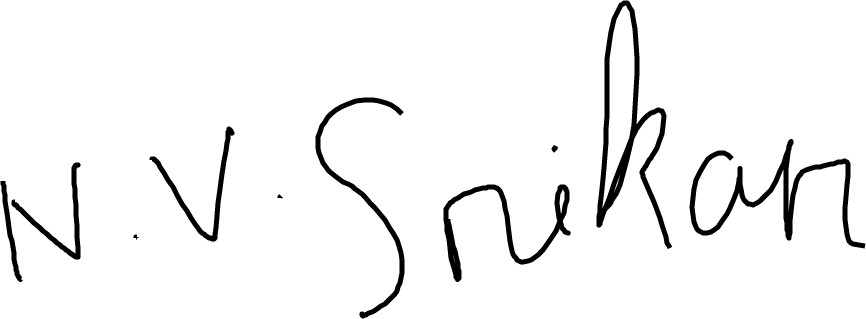 N. V. Srikar